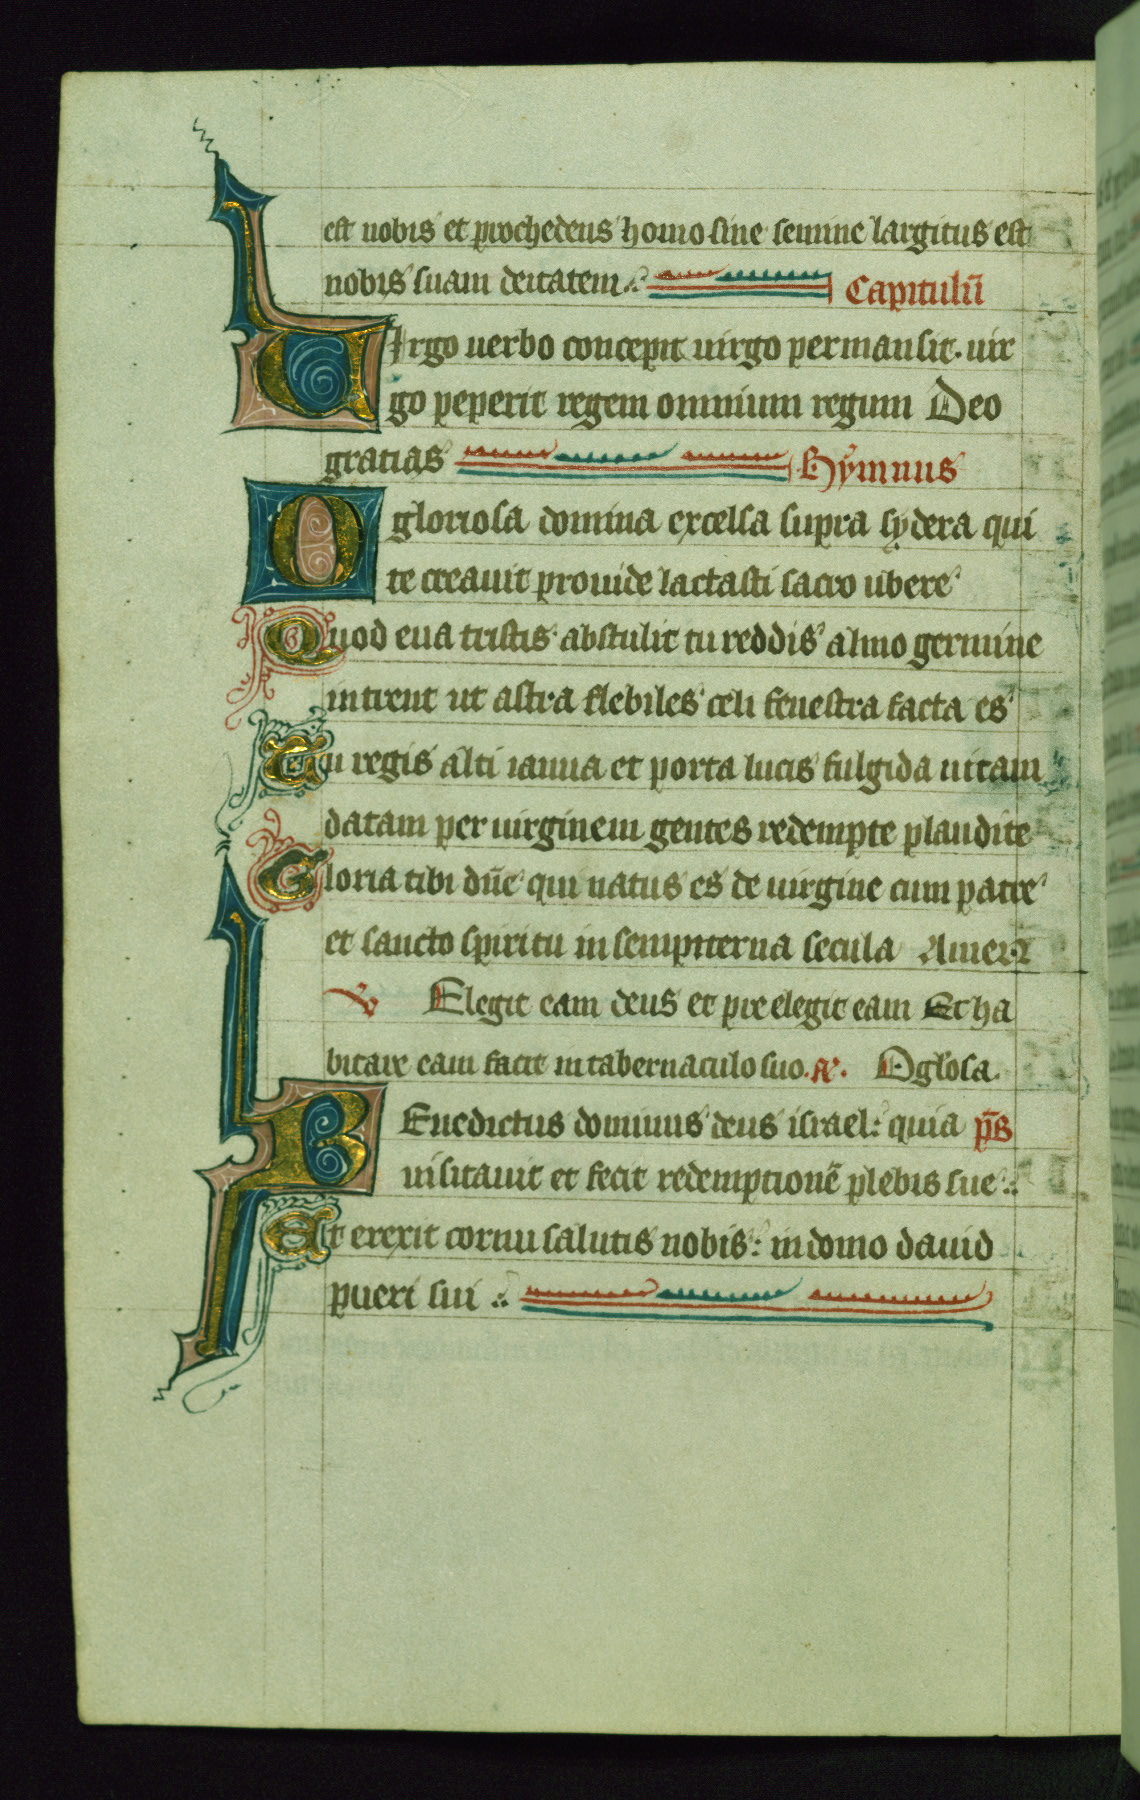 est nobis et prochedeus homo sine semine largitus est
nobis suam deitatem. Capitulũ
Virgo uerbo concepit uirgo permansit. uir
go peperit regem omnium regum Deo
gratias Hymnus
O gloriosa domina excelsa supra sydera qui
te creauit prouide lactasti sacro ubere
Quod eua tristis abstulit tu reddis almo germine
intrent ut astra flebiles celi fenestra facta es
Tu regis alti ianua et porta lucis fulgida uitam
datam per uirginem gentes redempte plaudite
Gloria tibi dñe qui natus es de uirgine cum patre
et sancto spiritu in sempiterna secula Amen
V Elegit eam deus et pre elegit eam Et ha
bitare eam facit in tabernaculo suo. A. O glosa.
Benedictus dominus deus israel: quia ps
uisitauit et fecit redemptionẽ plebis sue
Et erexit cornu salutis nobis: in domo dauid
pueri sui